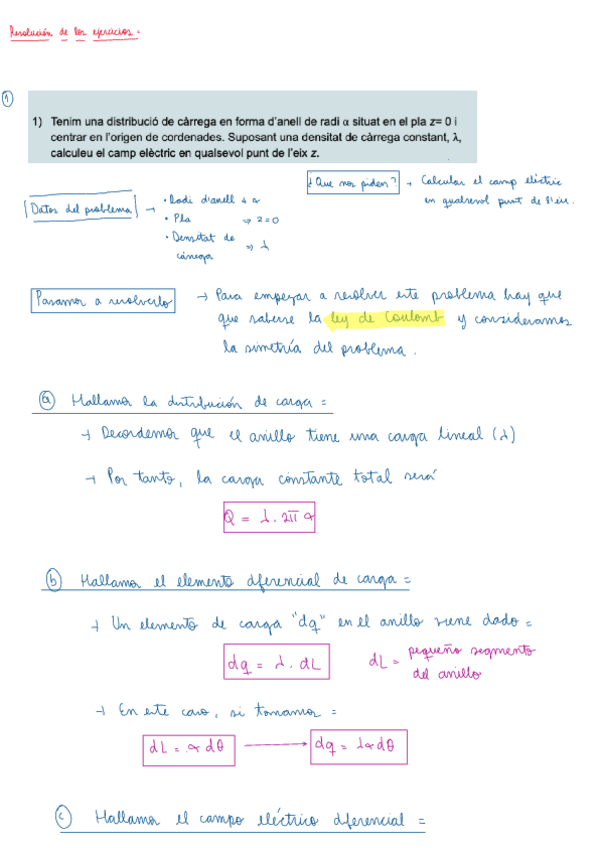 Resolución de los ejercicios.
①
1) Tenim una distribució de càrrega en forma d'anell de radi α situat en el pla z= 0 i
centrar en l'origen de cordenades. Suposant una densitat de càrrega constant, λ,
calculeu el camp elèctric en qualsevol punt de l'eix z.
¿Que nos piden? → Calcular el camp elèctric
en qualsevol punt de l'eix.
Datos del problema → • Radi d'anell → α
• Pla → z=0
• Densitat de
càrrega → λ
Pasamos a resolverlo → Para empezar a resolver este problema hay que
que saberse la ley de Coulomb y consideramos
la simetría del problema.
ⓐ Hallamos la distribución de carga =
→ Recordemos que el anillo tiene una carga lineal (λ)
→ Por tanto, la carga constante total será
Q = λ . 2π α
ⓑ Hallamos el elemento diferencial de carga =
→ Un elemento de carga "dq" en el anillo viene dado =
dq = λ . dL dL = pequeño segmento
del anillo
→ En este caso, si tomamos =
dL = α dθ → dq = λα dθ
ⓒ Hallamos el campo eléctrico diferencial =